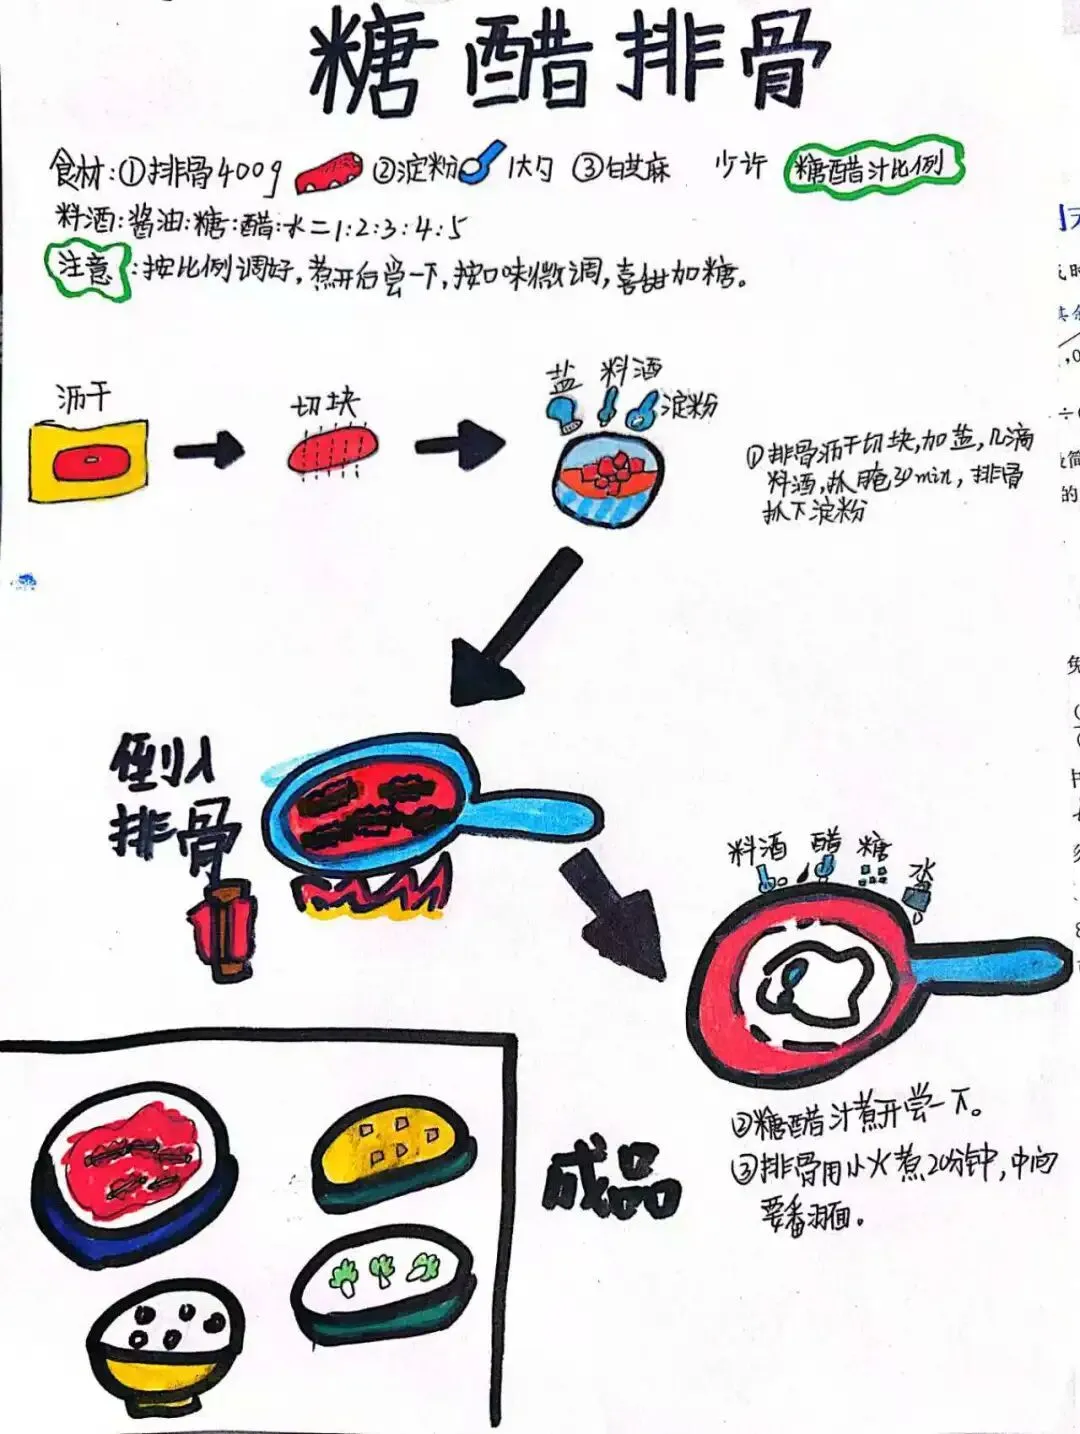 糖醋排骨
食材:①排骨400g ②淀粉 1大勺 ③白芝麻 少许 糖醋汁比例
料酒:酱油:糖:醋:水=1:2:3:4:5
注意:按比例调好,煮开后尝一下,按口味微调,喜甜加糖。
沥干
切块
盐 料酒
淀粉
①排骨沥干切块,加盐,几滴
料酒,抓腌30min,排骨
抓下淀粉
倒入
排骨
料酒 醋 糖 水
②糖醋汁煮开尝一下。
③排骨用小火煮20分钟,中间
要番羽面。
成品